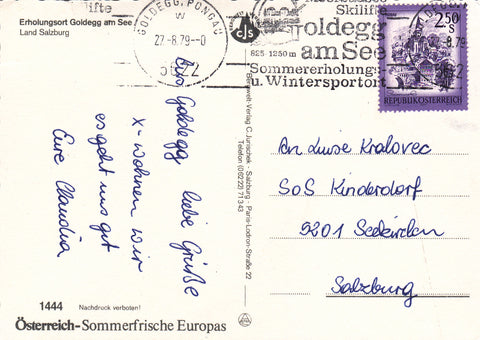 Erholungsort Goldegg am See
Land Salzburg
GOLDEGG, PONGAU
27.-8.79--0
5622
cjs
825-1250 m
Skilifte
Goldegg
am See
Sommererholungs
u. Wintersportort
2.50
S
REPUBLIK ÖSTERREICH
Aus Goldegg liebe Grüße
x-wohnen wir
es geht uns gut
Eure Claudia
Bergwelt-Verlag C. Jurischek - Salzburg - Paris-Lodron-Straße 22
Telefon (0 62 22) 71 3 43
An Luise Kralovec
SOS Kinderdorf
5201 Seekirchen
Salzburg
1444
Nachdruck verboten!
Österreich-Sommerfrische Europas